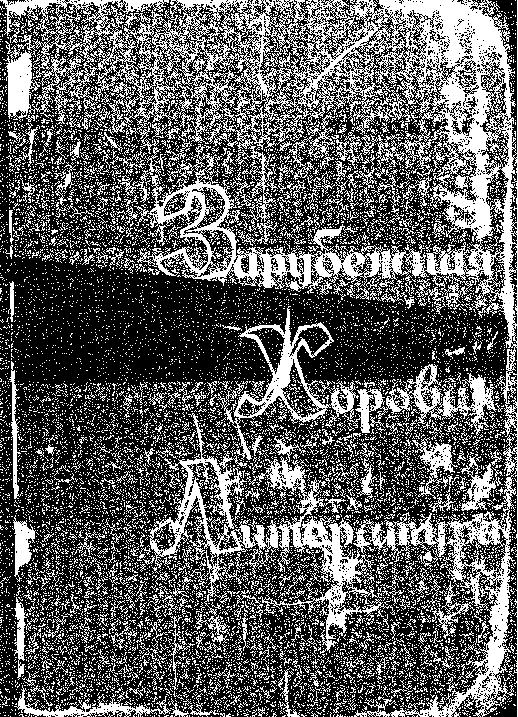 Зарубежная
Хоровая
Литература